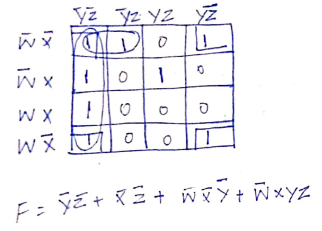 ȳz̄ ȳz yz yz̄
w̄ x̄ 1 1 0 1
w̄ x 1 0 1 0
w x 1 0 0 0
w x̄ 1 0 0 1
F = ȳz̄ + x̄ z̄ + w̄ x̄ ȳ + w̄ x y z